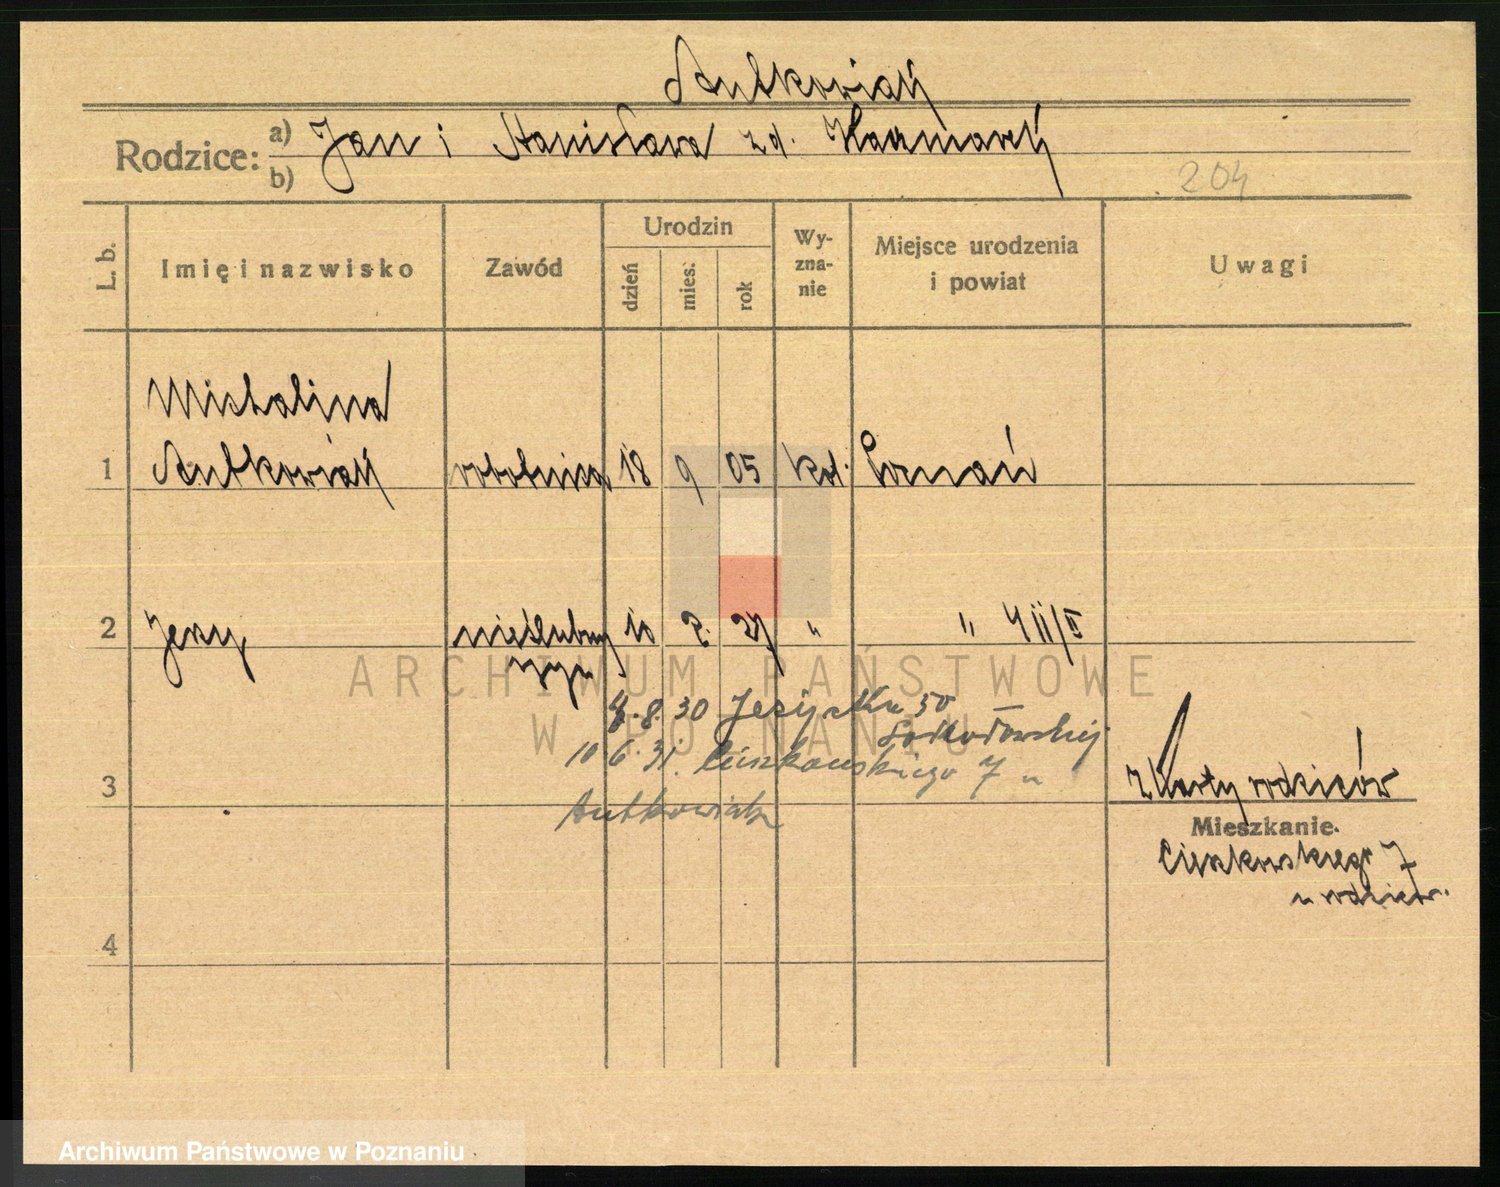 Antkowiak
Rodzice:
a) Jan i Stanisława zd. Kaczmarek
b)
204
L. b.
Imię i nazwisko
Zawód
Urodzin
dzień
mies.
rok
Wy-
zna-
nie
Miejsce urodzenia
i powiat
Uwagi
Michalina
1 Antkowiak robotnica 18 9 05 kat. Poznań
2 Jerzy nieślubny 10 2. 27 " "
syn
ARCHIWUM PAŃSTWOWE
W POZNANIU
8.30 Jeżycka 50
10.6.31. Cieszkowskiego 7 u
Antkowiak
3
z karty rodziców
Mieszkanie.
Cieszkowskiego 7
u rodziców.
4
Archiwum Państwowe w Poznaniu